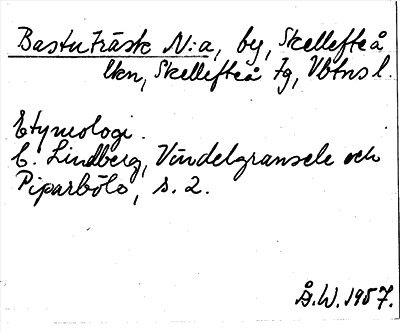 Bastuträsk N:a, by, Skellefteå
lkn, Skellefteå tg, Vbtns l.
Etymologi.
C. Lindberg, Vindelgransele och
Piparbölo, s. 2.
Å.W. 1957.